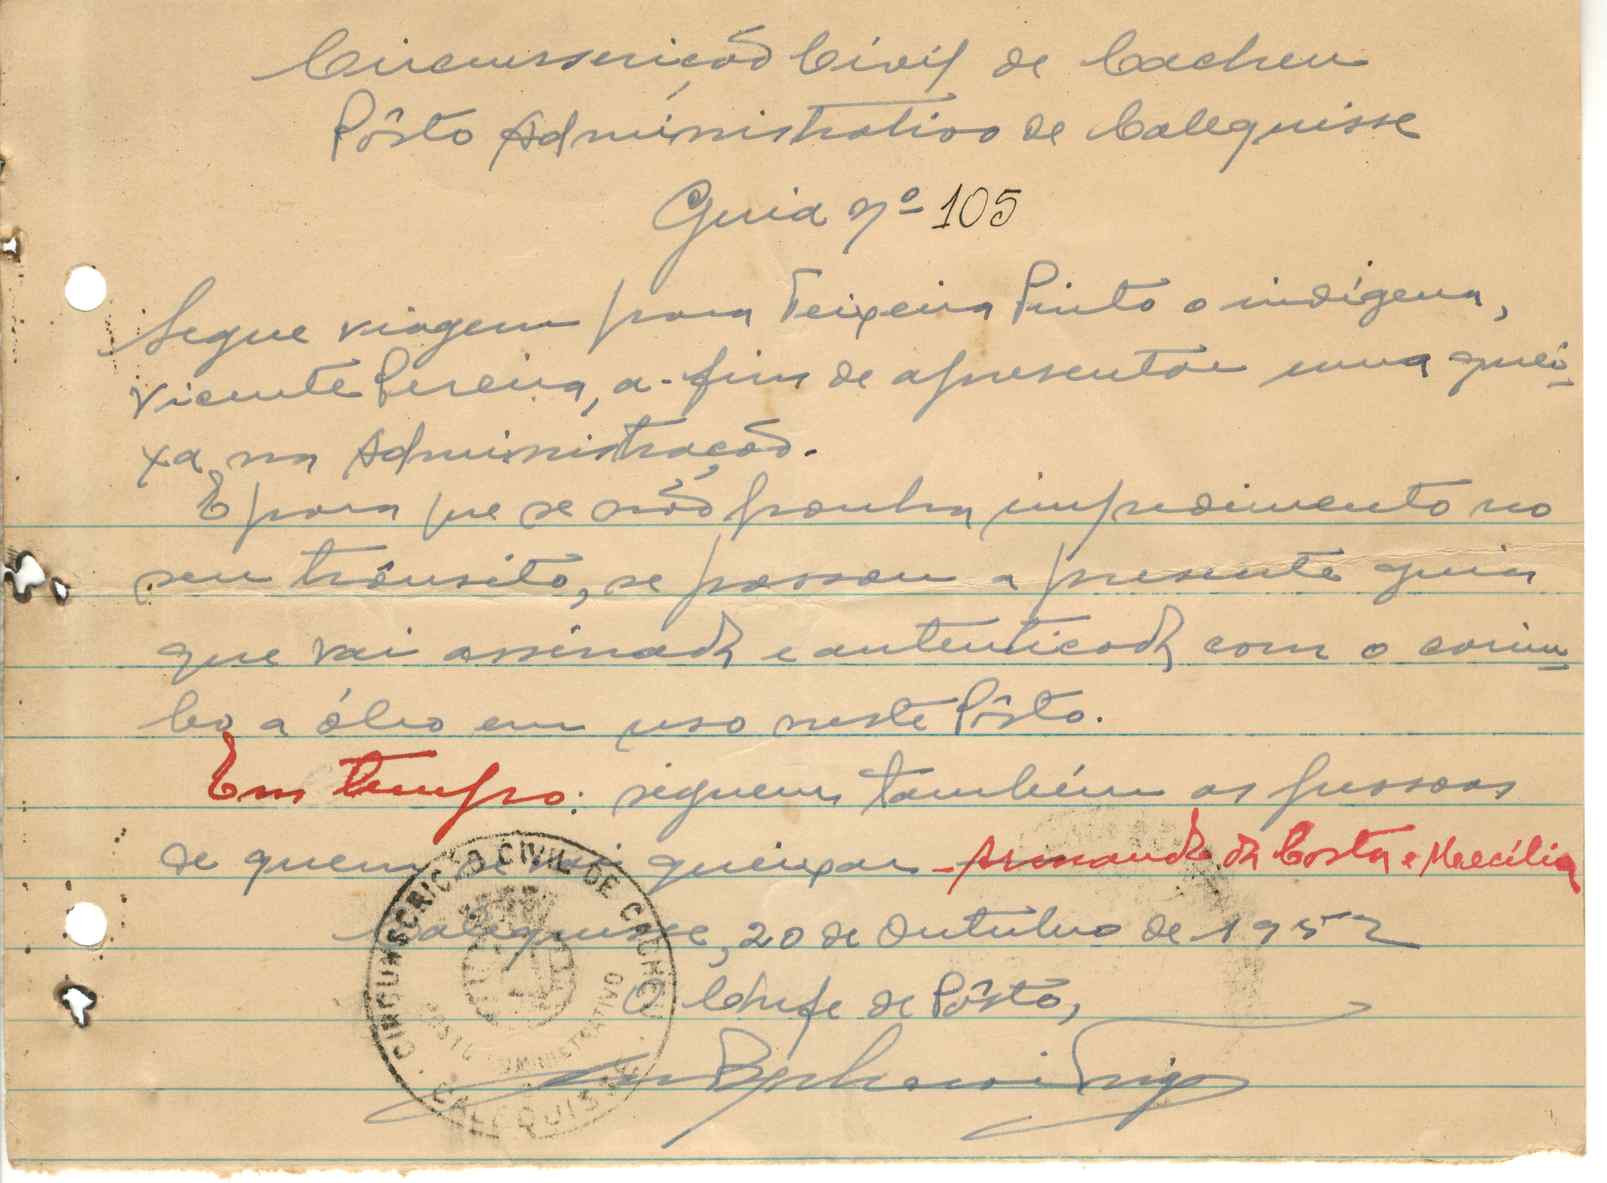 Circunscrição Civil de Cacheu
Pôsto Administrativo de Calequisse
Guia nº 105
Segue viagem para Teixeira Pinto o indígena,
Vicente Pereira, a-fim de apresentar uma quei-
xa na Administração.
E para que se não ponha impedimento no
seu trânsito, se passou a presente guia
que vai assinada e autenticada com o carim-
bo a óleo em uso neste Pôsto.
Em tempo: seguem também as pessoas
de quem se vai queixar - Armando da Costa e Maecília
Calequisse, 20 de Outubro de 1952
O Chefe de Pôsto,
CIRCUNSCRIÇÃO CIVIL DE CACHEU
POSTO ADMINISTRATIVO
CALEQUISSE